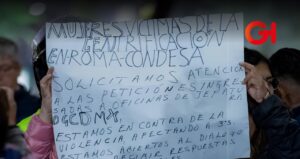 MUJERES VICTIMAS DE LA
GENTRIFICACIÓN
EN ROMA-CONDESA
SOLICITAMOS ATENCIÓN
A LAS PETICIONES INGRE
SADAS A OFICINAS DE
ESTAMOS EN CONTRA DE LA
VIOLENCIA AFECTANDO A
ESTAMOS ABIERTOS AL DIALOGO
RESPUESTAS
GH